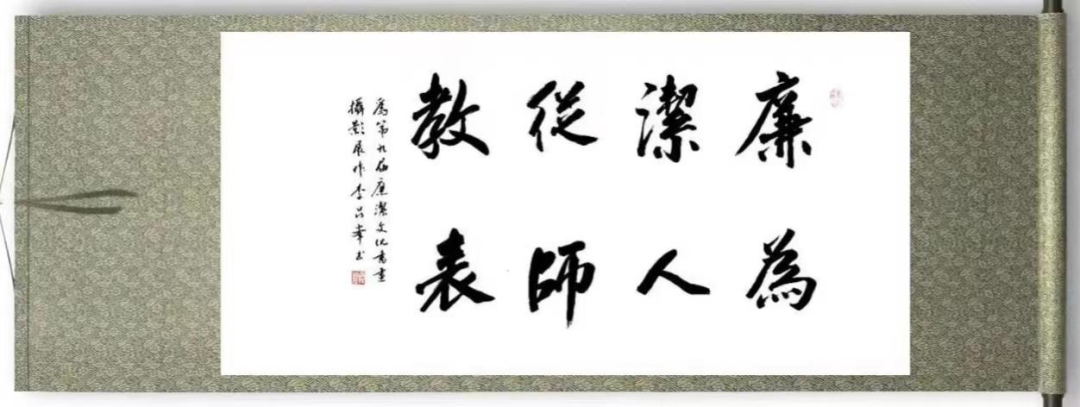 廉潔從教
為人師表
為第九届廉潔文化書畫
攝影展作李